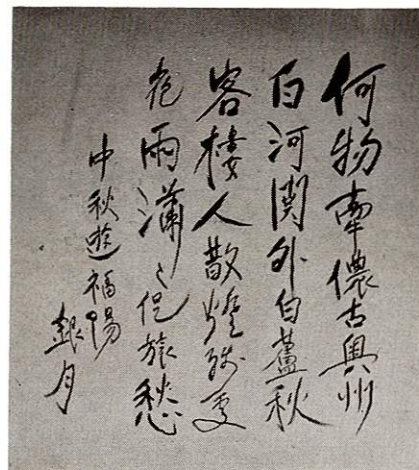 何物牽儂古奥州
白河関外白蘆秋
客樓人散燈残更
夜雨瀟々促旅愁
中秋遊福陽
銀月